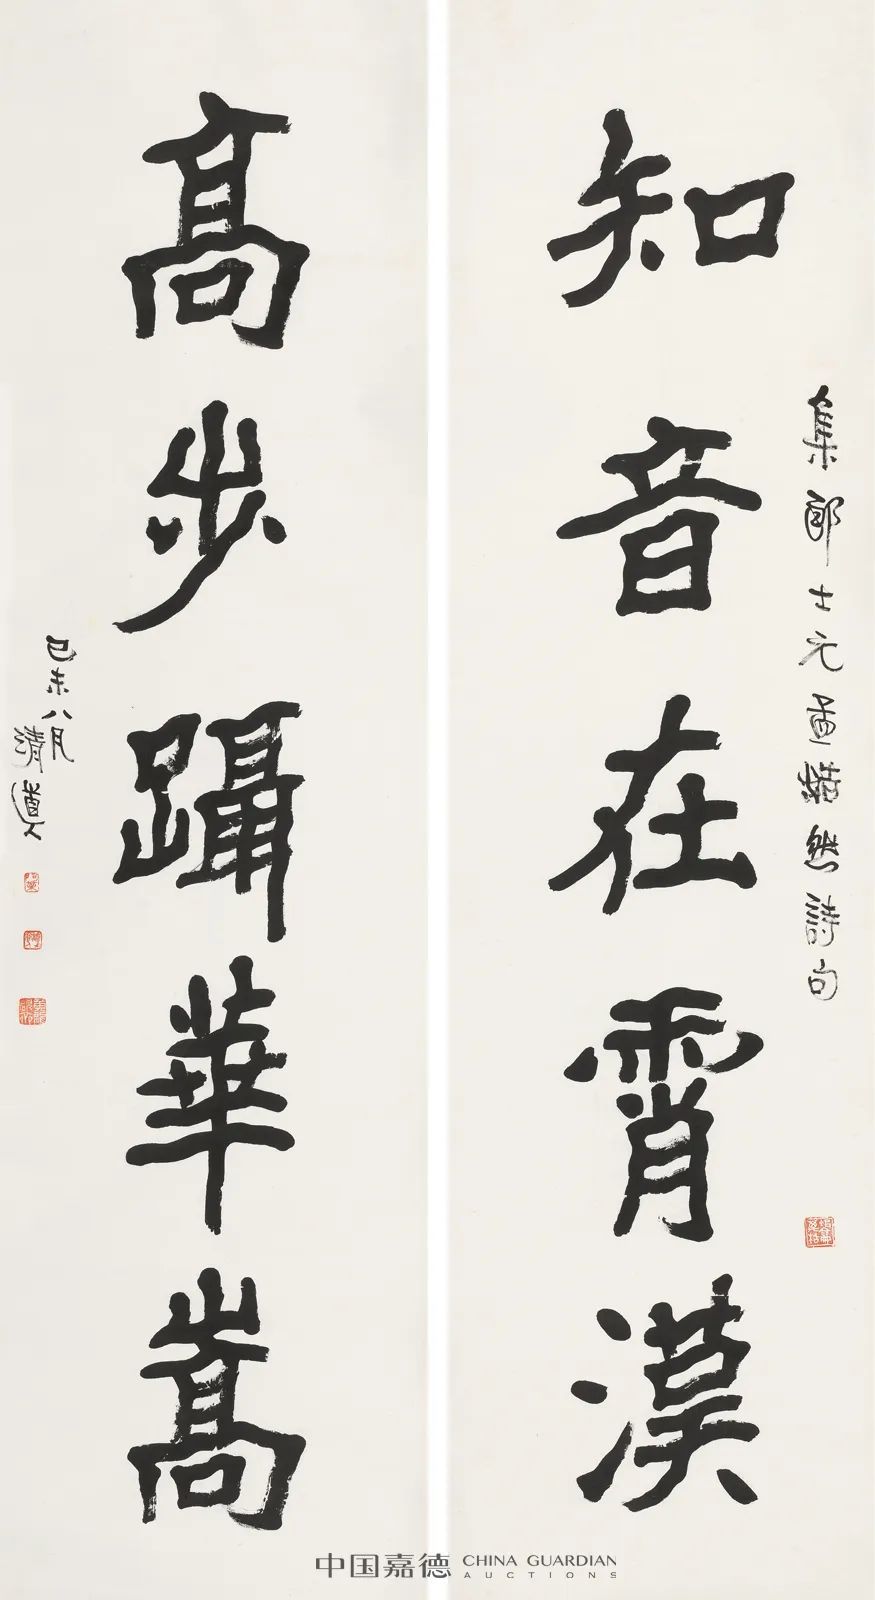 集郎士元孟浩然詩句
知音在霄漢
高步躡華嵩
己未八月
清道人
中国嘉德 CHINA GUARDIAN
AUCTIONS